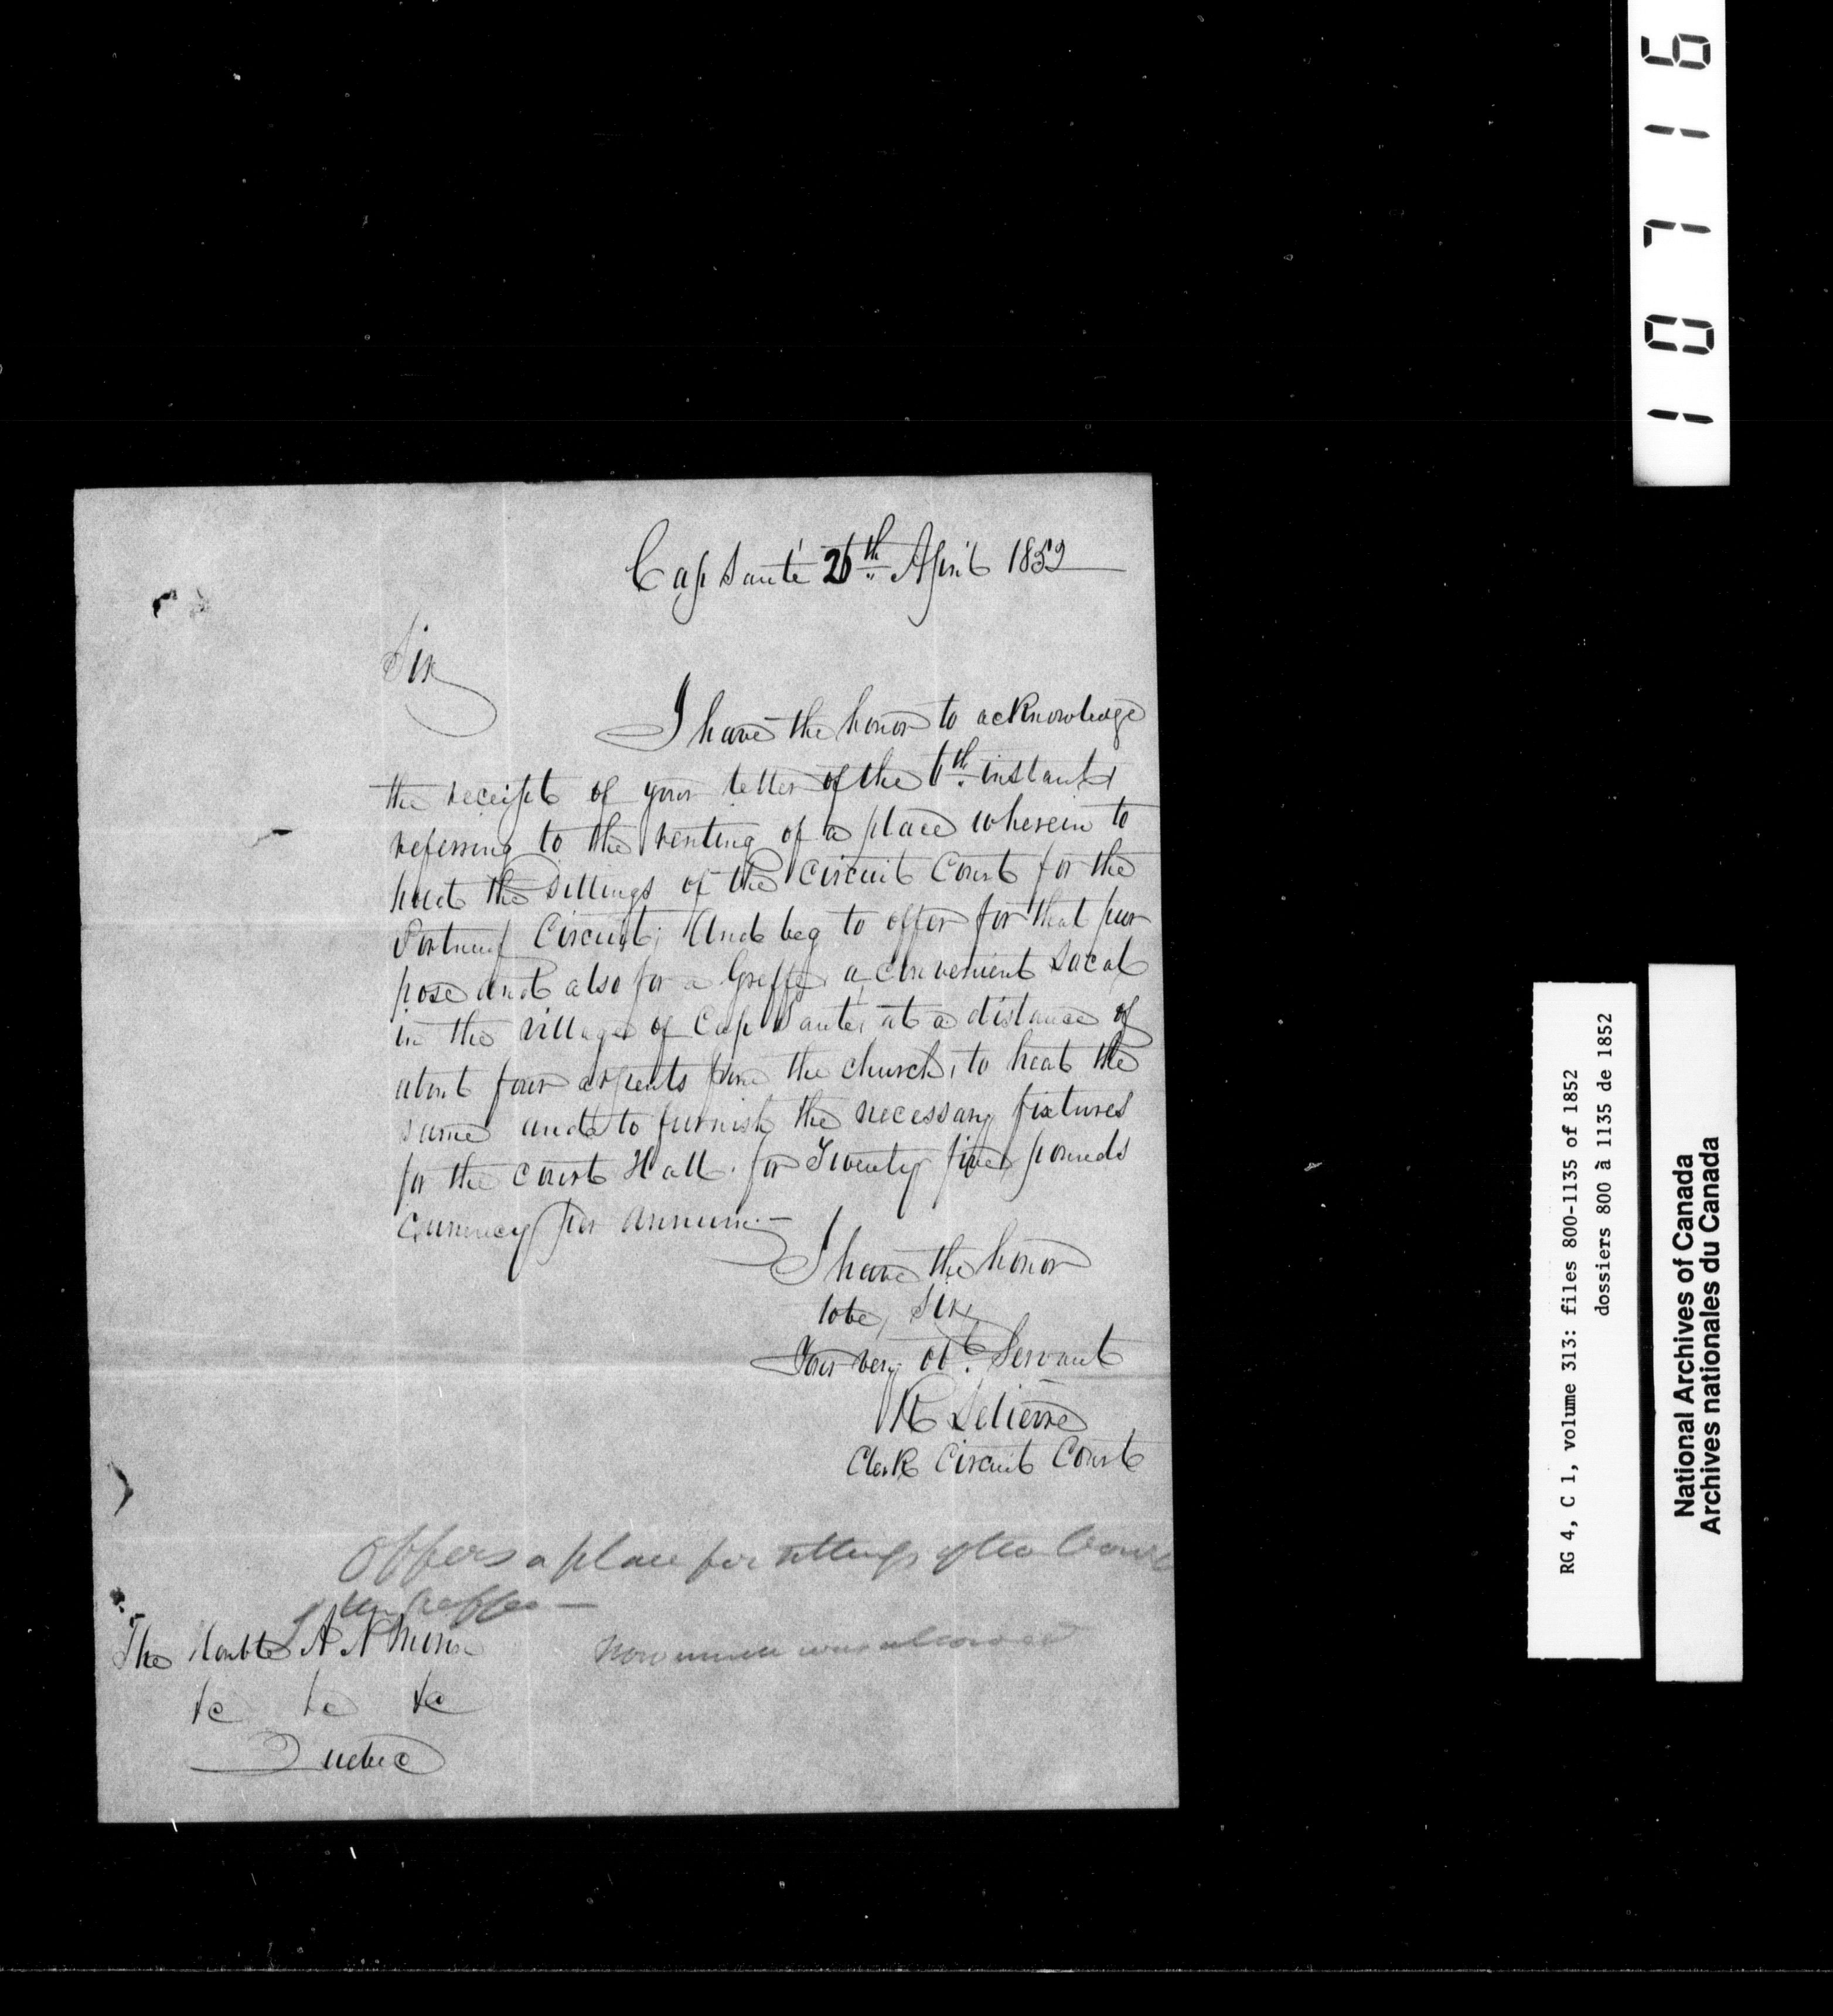 Cap Santé 26th April 1852
Sir
I have the honor to acknowledge
the receipt of your letter of the 6th instant
referring to the renting of a place wherein to
hold the sittings of the Circuit Court for the
Portneuf Circuit; And beg to offer for that pur
pose and also for a Greffe, a convenient Local
in the village of Cap Santé, at a distance of
about four arpents from the church, to heat the
same and to furnish the necessary fixtures
for the court Hall. for Twenty five pounds
Currency per annum.—
I have the honor
to be, Sir,
Your very Obt. Servant
Clerk Circuit Court
Offers a place for sittings of the Court
Greffe —
The Honble A N Morin
how much was allowed
&c &c &c
Quebec
107716
RG 4, C 1, volume 313: files 800-1135 of 1852
dossiers 800 à 1135 de 1852
National Archives of Canada
Archives nationales du Canada